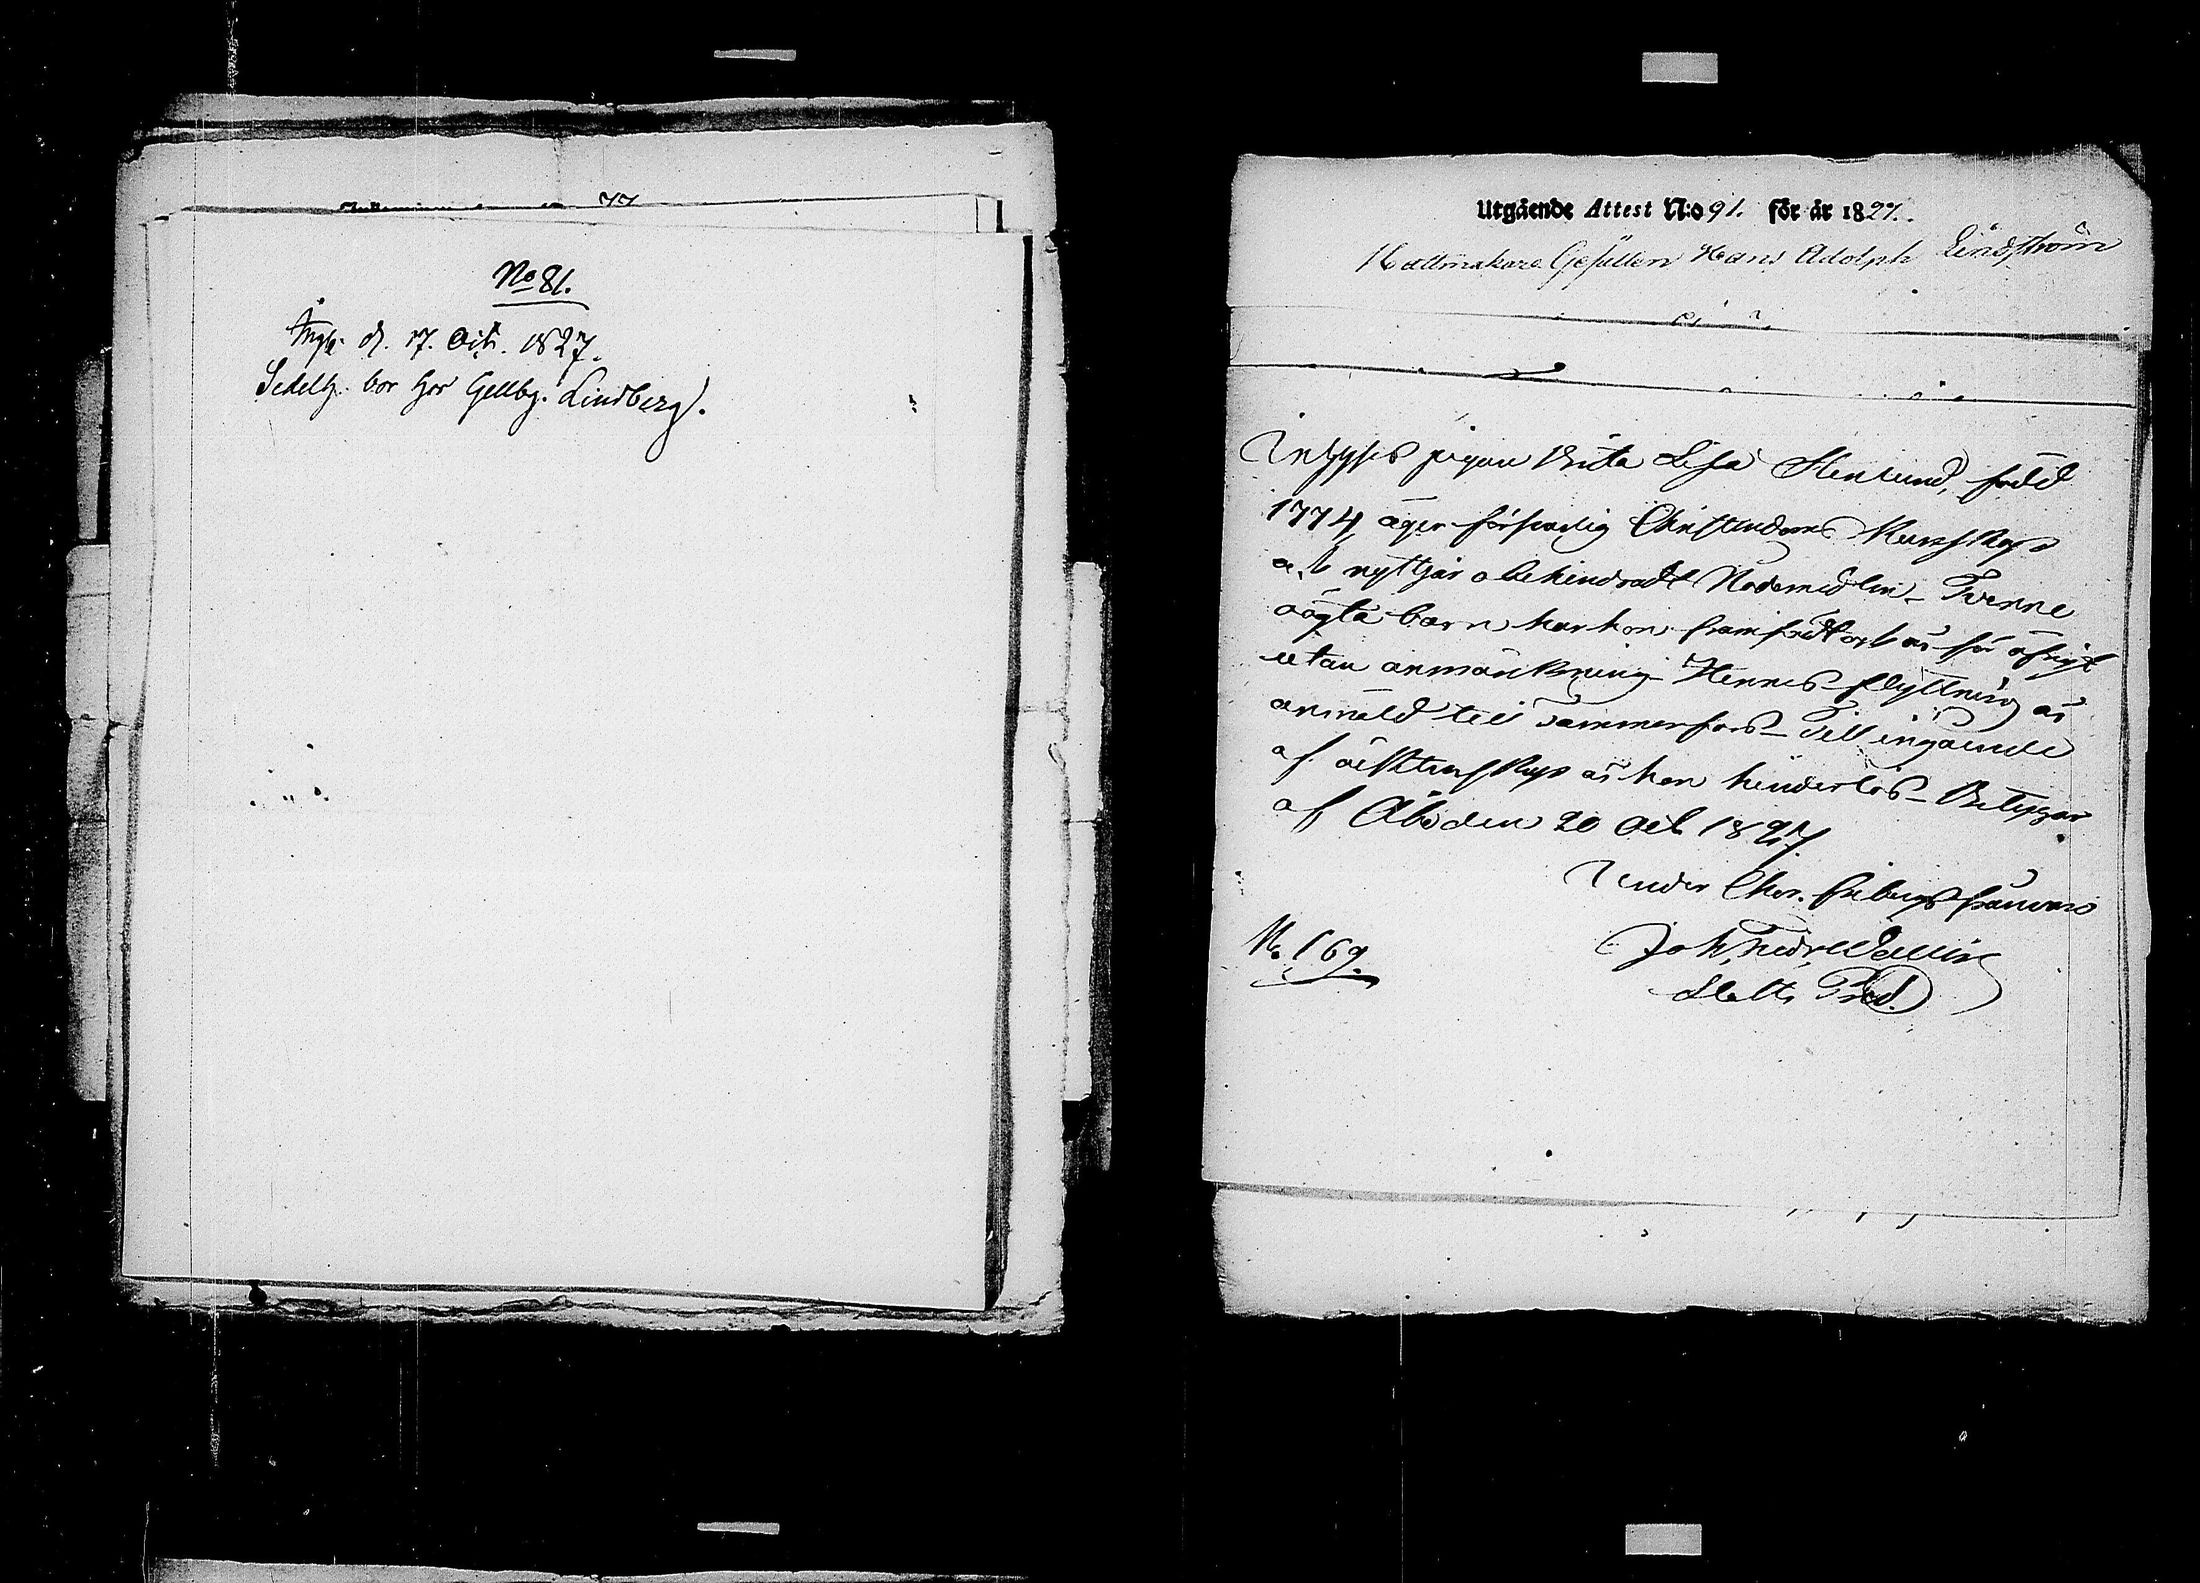 No 81.
Ingk. d. 17. Oct. 1827.
Sedelh. bor hos Gellbg. Lindberg.
Utgående Attest N:o 91. för år 1827.
Hattmakare Gesällen Hans Adolph Lindström
Intygas pigan Brita Lisa Stenlund, född
1774 äger försvarlig Christendoms Kunskap
och nyttjar obehindradt Nådemedlen. Tvenne
oägta barn har hon framfödt och är för öfrigt
utan anmärkning. Hennes flyttning är
anmäld till Tammerfors. Till ingående
af äktenskap är hon hinderlös. Betygar
af Åbo den 20 Oct 1827.
Under frånvaro
No 169.
Joh. Fredr. Wallin